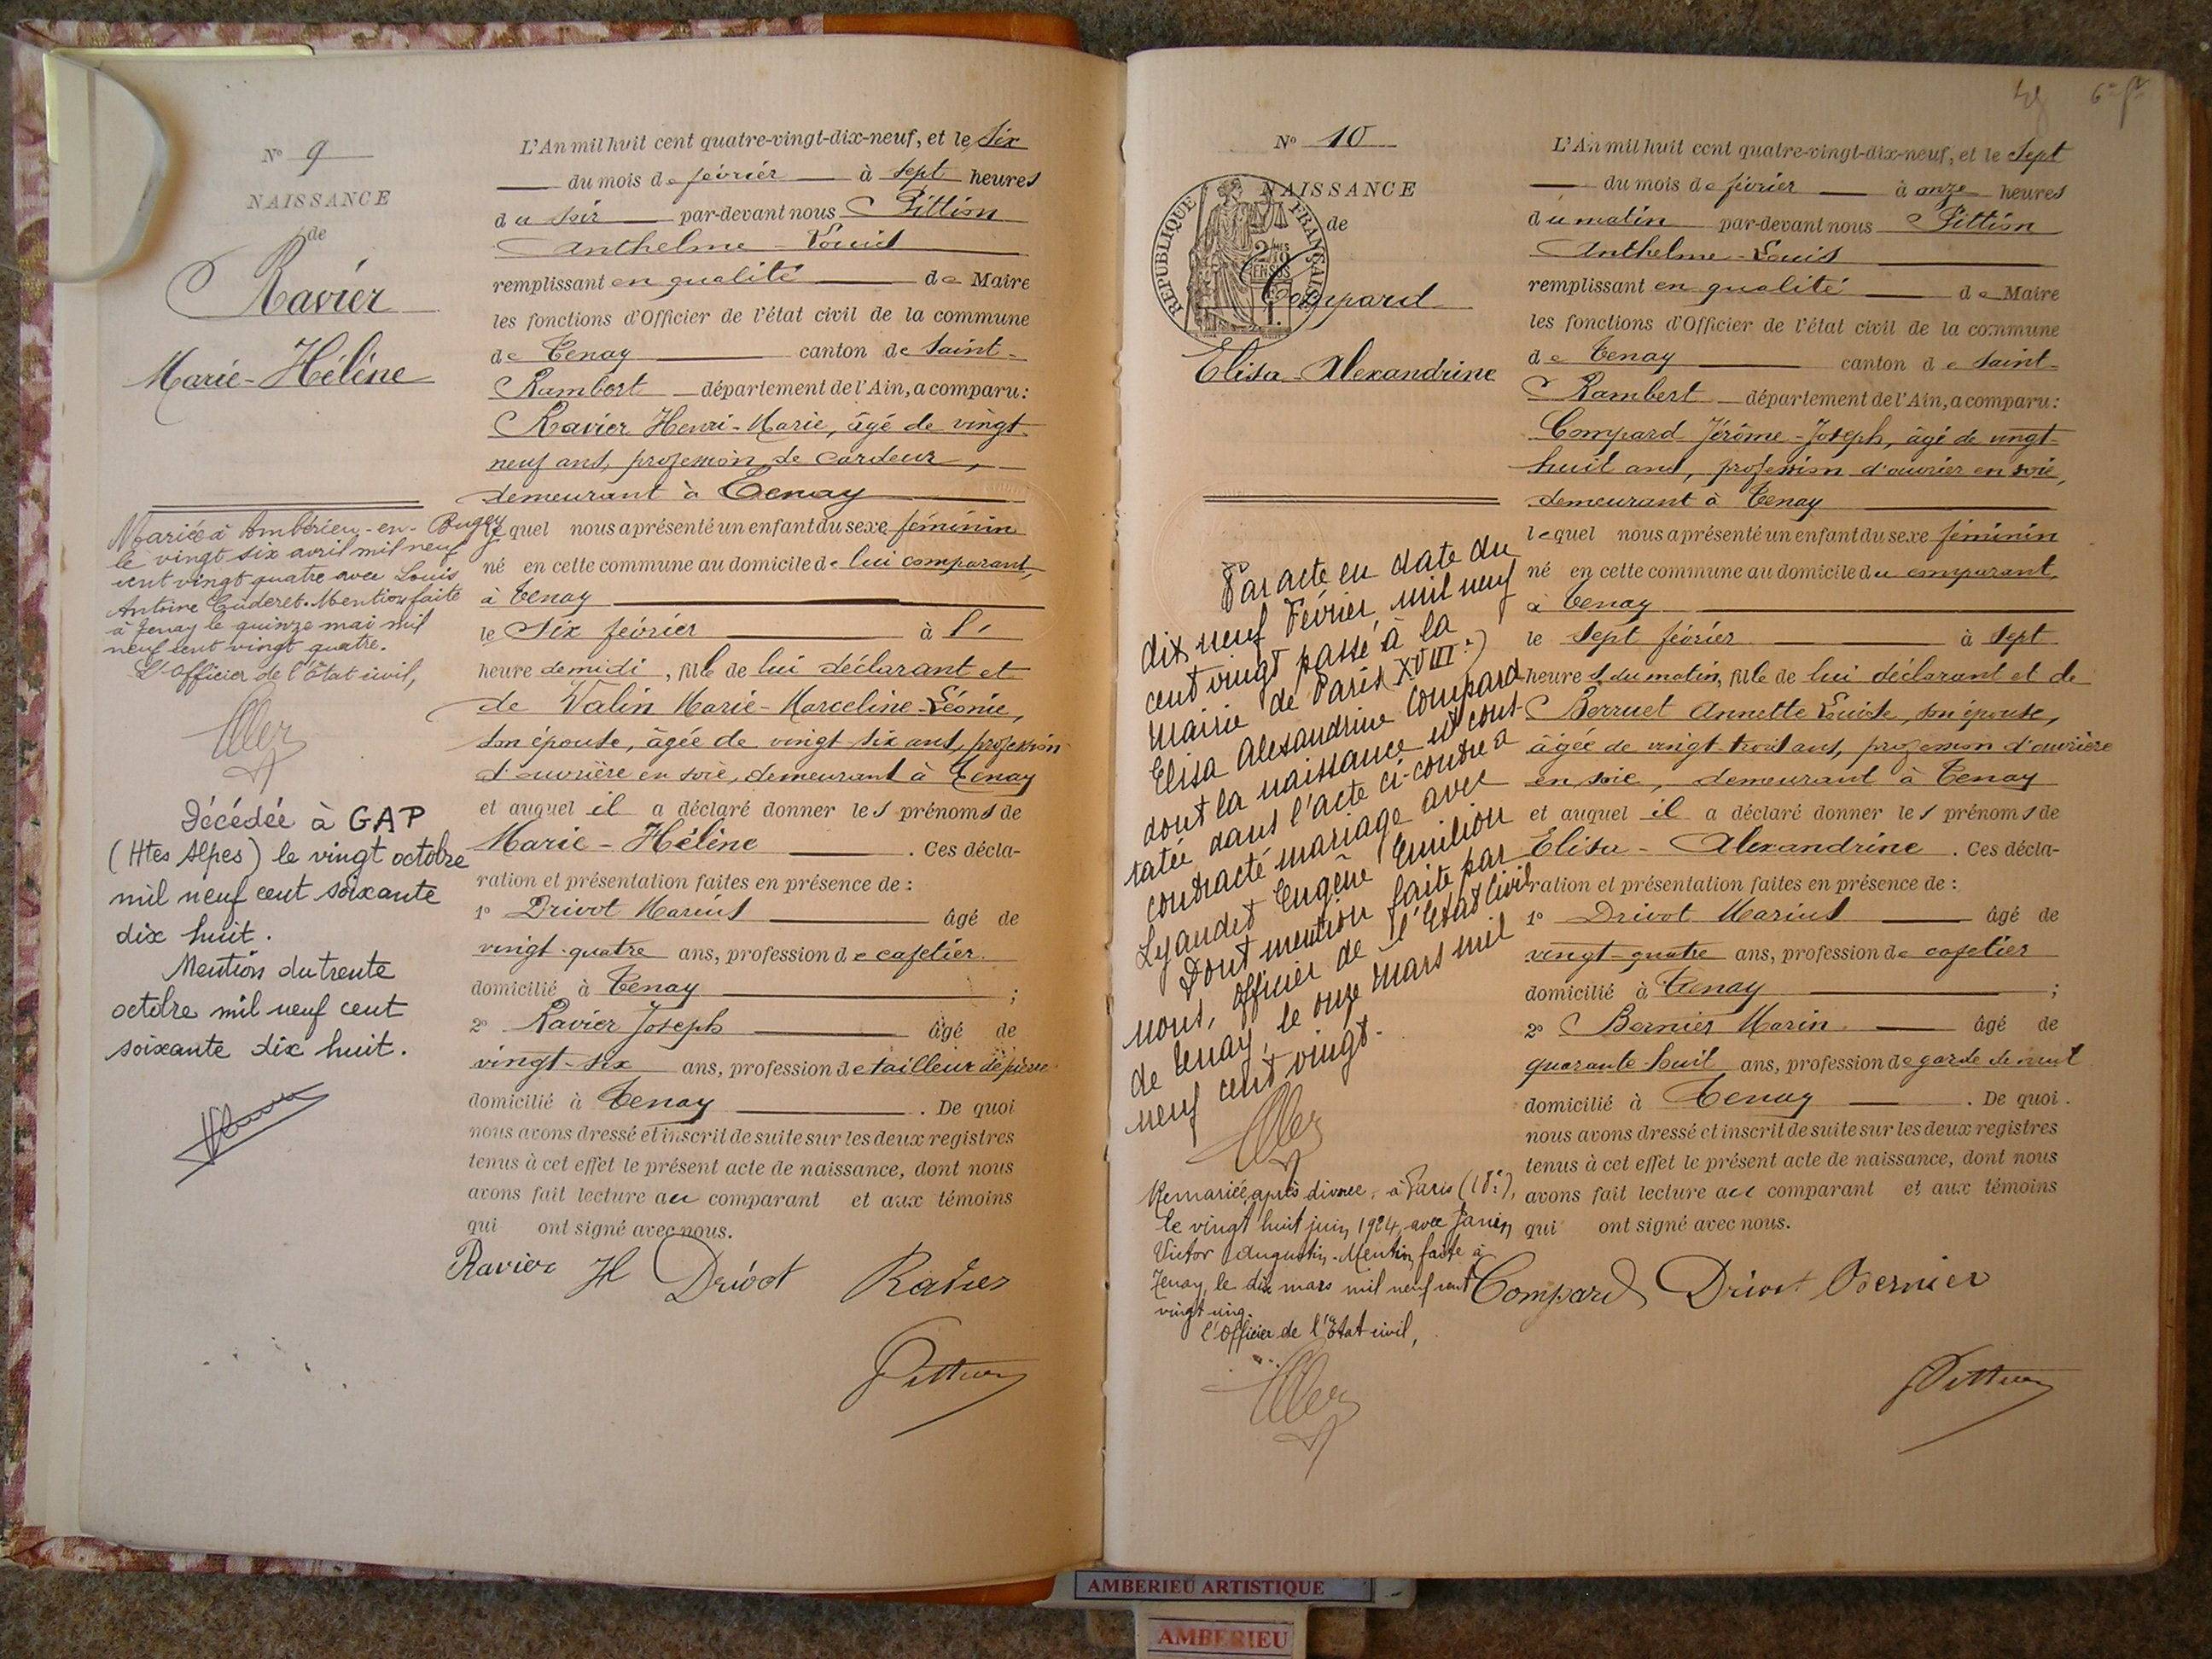 Nº 9
NAISSANCE
de
Ravier
Marie-Hélène
Mariée à Ambérieu-en-Bugey
le vingt six avril mil neuf
cent vingt quatre avec Louis
Antoine Cuderet. Mention faite
à Tenay le quinze mai mil
neuf cent vingt quatre.
L'Officier de l'État civil,
Décédée à GAP
(Htes Alpes) le vingt octobre
mil neuf cent soixante
dix huit.
Mention du trente
octobre mil neuf cent
soixante dix huit.
L'An mil huit cent quatre-vingt-dix-neuf, et le six
du mois de février à sept heures
du soir par-devant nous Pittion
Anthelme-Louis
remplissant en qualité de Maire
les fonctions d'Officier de l'état civil de la commune
de Tenay canton de Saint-
Rambert département de l'Ain, a comparu:
Ravier Henri-Marie, âgé de vingt
neuf ans, profession de cardeur,
demeurant à Tenay
lequel nous a présenté un enfant du sexe féminin
né en cette commune au domicile de lui comparant,
à Tenay
le six février à
heure demidi, fille de lui déclarant et
de Valin Marie-Marceline-Léonie,
son épouse, âgée de vingt-six ans, profession
d'ouvrière en soie, demeurant à Tenay
et auquel il a déclaré donner les prénoms de
Marie-Hélène. Ces décla-
ration et présentation faites en présence de :
1º Drivot Marius âgé de
vingt-quatre ans, profession de cafetier
domicilié à Tenay ;
2º Ravier Joseph âgé de
vingt-six ans, profession de tailleur de pierre
domicilié à Tenay. De quoi
nous avons dressé et inscrit de suite sur les deux registres
tenus à cet effet le présent acte de naissance, dont nous
avons fait lecture au comparant et aux témoins
qui ont signé avec nous.
Ravier H Drivot Ravier
Pittion
6e ft
Nº 10
NAISSANCE
de
REPUBLIQUE FRANÇAISE
2/10
EN SUS
Compard
Elisa-Alexandrine
Par acte en date du
dix neuf Février, mil neuf
cent vingt passé à la
Mairie de Paris (XVIIIe)
Elisa Alexandrine Compard
dont la naissance est cons-
tatée dans l'acte ci-contre a
contracté mariage avec
Lyaudet Eugène Emilion
Dont mention faite par
nous, officier de l'Etat Civil
de Tenay, le onze Mars mil
neuf cent vingt.
Remariée, après divorce, à Paris (18e),
le vingt huit juin 1924, avec Janin
Victor Augustin. Mention faite à
Tenay, le dix mars mil neuf cent
vingt cinq.
l'Officier de l'Etat civil,
L'An mil huit cent quatre-vingt-dix-neuf, et le sept
du mois de février à onze heures
du matin par-devant nous Pittion
Anthelme-Louis
remplissant en qualité de Maire
les fonctions d'Officier de l'état civil de la commune
de Tenay canton de Saint-
Rambert département de l'Ain, a comparu:
Compard Jérôme-Joseph, âgé de vingt-
huit ans, profession d'ouvrier en soie,
demeurant à Tenay
lequel nous a présenté un enfant du sexe féminin
né en cette commune au domicile du comparant,
à Tenay
le sept février à sept
heures du matin, fille de lui déclarant et de
Berruet Annette Louise, son épouse,
âgée de vingt-trois ans, profession d'ouvrière
en soie, demeurant à Tenay
et auquel il a déclaré donner les prénoms de
Elisa-Alexandrine. Ces décla-
ration et présentation faites en présence de :
1º Drivot Marius âgé de
vingt-quatre ans, profession de cafetier
domicilié à Tenay ;
2º Bernier Marin âgé de
quarante-huit ans, profession de garde de nuit
domicilié à Tenay. De quoi
nous avons dressé et inscrit de suite sur les deux registres
tenus à cet effet le présent acte de naissance, dont nous
avons fait lecture au comparant et aux témoins
qui ont signé avec nous.
Compard Drivot Bernier
Pittion
AMBERIEU ARTISTIQUE
AMBERIEU